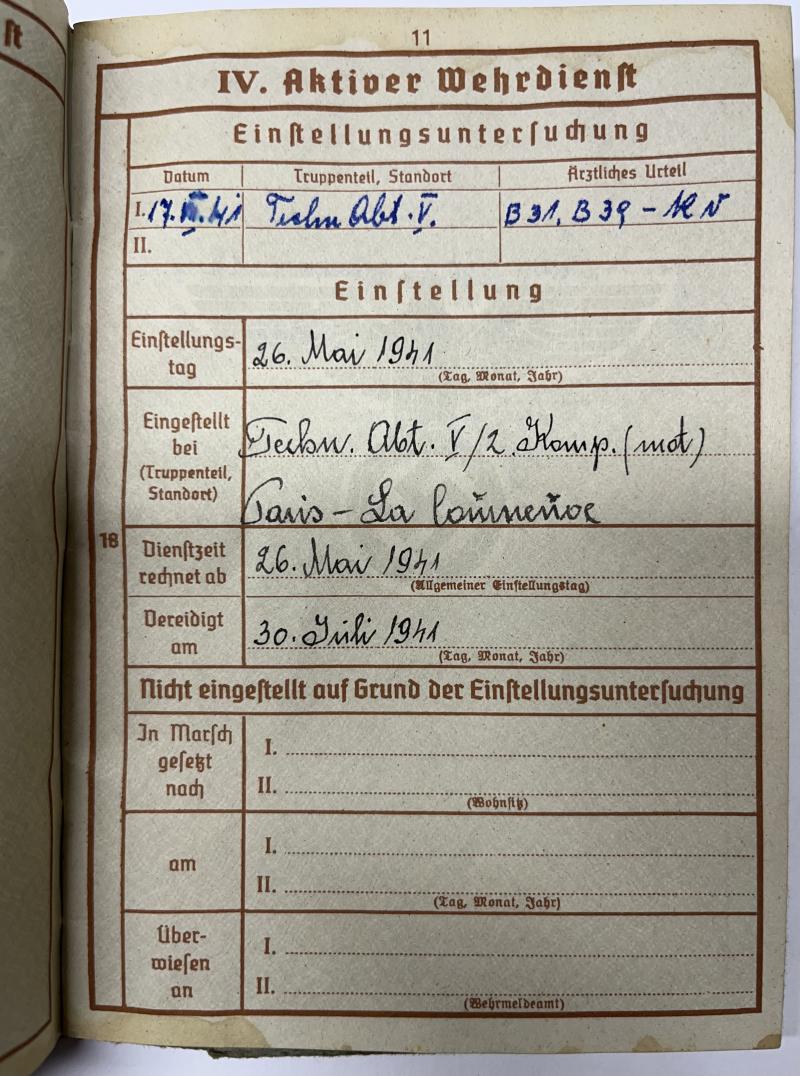 ſt
11
IV. Aktiver Wehrdienſt
Einſtellungsunterſuchung
Datum Truppenteil, Standort Ärztliches Urteil
I. 17. .41 Techn Abt. V. B 31, B 39 - kv
II.
Einſtellung
Einſtellungs-
tag
26. Mai 1941
(Tag, Monat, Jahr)
Eingeſtellt
bei
(Truppenteil,
Standort)
Techn. Abt. V/2. Komp. (mot)
Paris - La Courneuve
18
Dienſtzeit
rechnet ab
26. Mai 1941
(Allgemeiner Einſtellungstag)
Vereidigt
am
30. Juli 1941
(Tag, Monat, Jahr)
Nicht eingeſtellt auf Grund der Einſtellungsunterſuchung
In Marſch
geſetzt
nach
I.
II.
(Wohnſitz)
am
I.
II.
(Tag, Monat, Jahr)
Über-
wieſen
an
I.
II.
(Wehrmeldeamt)